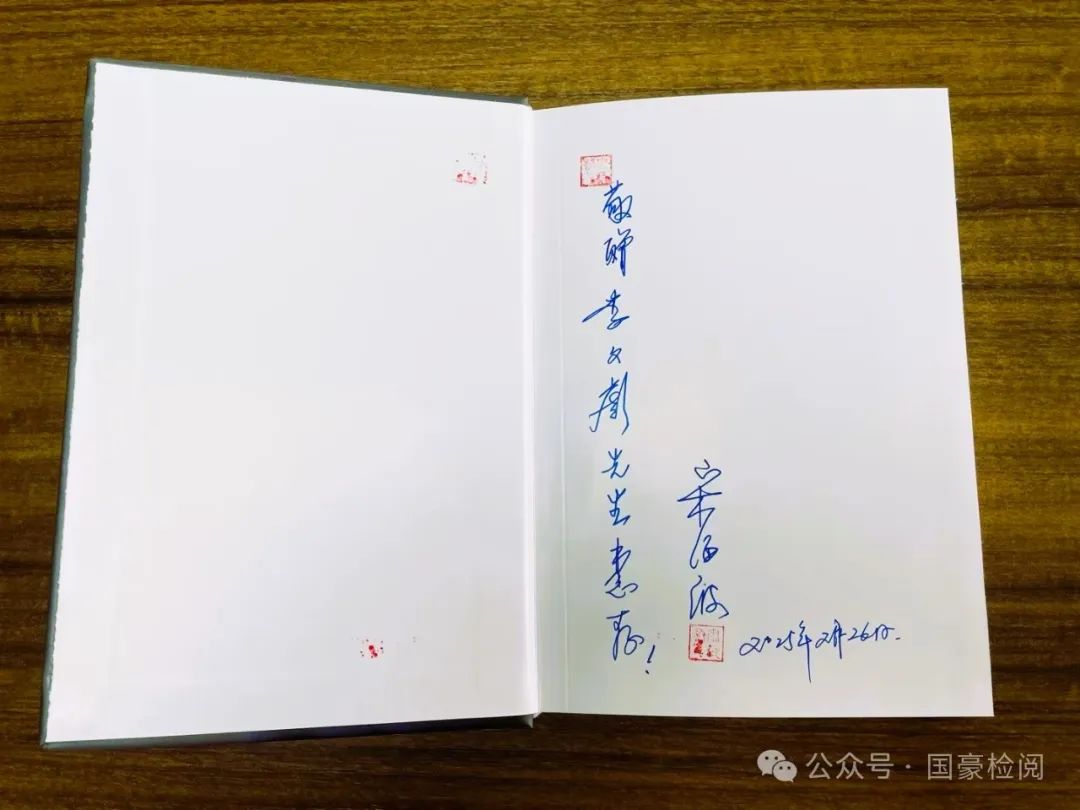 敬赠李文彪先生惠存!
宋海波
2025年2月26日.
公众号·国豪检阅